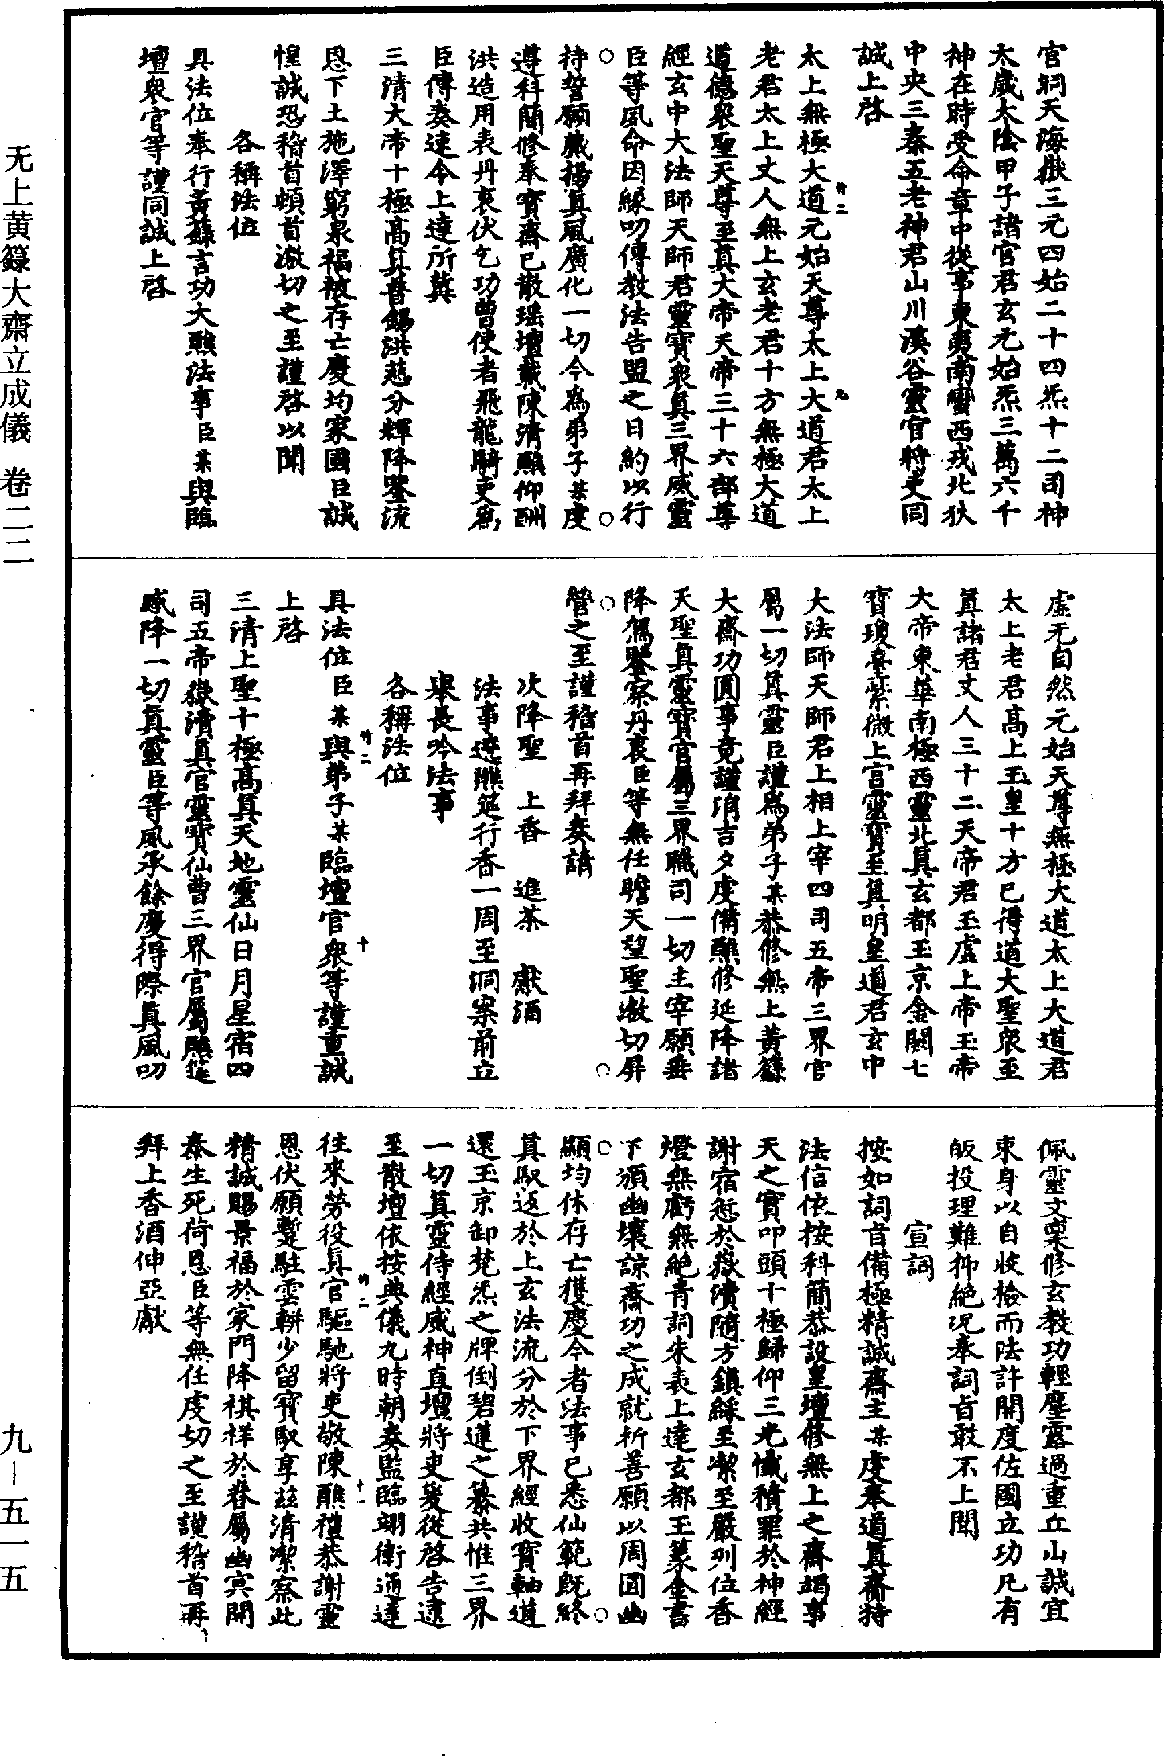 官祠天海嶽三元四始二十四炁十二司神
太歲太陰甲子諸官君玄元始炁三萬六千
神在時受命章中從事東夷南蠻西戎北狄
中央三秦五老神君山川溪谷靈官將吏同
誠上啓
太上無極大道元始天尊太上大道君太上
老君太上丈人無上玄老君十方無極大道
道德衆聖天尊至真大帝天帝三十六部尊
經玄中大法師天師君靈寶衆真三界威靈
臣等夙命因緣叨傳教法告盟之日約以行
持誓願廣揚真風廣化一切今爲弟子某虔
遵科簡修奉寶齋已散瑶壇載陳清醮仰酬
洪造用表丹衷伏乞功曹使者飛龍騎吏爲
臣傳奏速令上達所冀
三清大帝十極高真普錫洪慈分輝降鑒流
恩下土施澤窮泉福被存亡慶均家國臣誠
惶誠恐稽首頓首激切之至謹啓以聞
各稱法位
具法位奉行黃籙言功大醮法事臣某與臨
壇衆官等謹同誠上啓
虛无自然元始天尊無極大道太上大道君
太上老君高上玉皇十方已得道大聖衆至
真諸君丈人三十二天帝君玉虛上帝玉帝
大帝東華南極西靈北真玄都玉京金闕七
寶瓊臺紫微上宮靈寶至真明皇道君玄中
大法師天師君上相上宰四司五帝三界官
屬一切真靈臣謹爲弟子某恭修無上黃籙
大齋功圓事竟謹涓吉夕虔備醮修延降諸
天聖真靈寶官屬三界職司一切主宰願垂
降駕鑒察丹衷臣等無任瞻天望聖激切屏
營之至謹稽首再拜奏請
次降聖 上香 進茶 獻酒
法事遶醮筵行香一周至洞案前立
舉長吟法事
各稱法位
具法位臣某與弟子某臨壇官衆等謹重誠
上啓
三清上聖十極高真天地靈仙日月星宿四
司五帝嶽瀆真官靈寶仙曹三界官屬醮筵
咸降一切真靈臣等夙承餘慶得際真風叨
佩靈文栗修玄教功輕塵露過重丘山誠宜
束身以自收檢而法許開度佐國立功凡有
皈投理難抑絕况奉詞旨敢不上聞
宣詞
按如詞旨備極精誠齋主某虔奉道真齋持
法信依按科簡恭設皇壇修無上之齋謁事
天之寶叩頭十極歸仰三光懺積罪於神經
謝宿愆於嶽瀆隨方鎮綵至潔至嚴列位香
燈無虧無絕青詞朱表上達玄都玉篆金書
下頒幽壤諒齋功之成就祈善願以周圓幽
顯均休存亡獲慶今者法事已悉仙範既終
真馭返於上玄法流分於下界經收寶軸道
還玉京卸梵炁之牌倒碧蓮之纂共惟三界
一切真靈侍經威神直壇將吏爰從啓告逮
至散壇依按典儀九時朝奏監臨翊衛通達
往來勞役真官驅馳將吏敬陳醮禮恭謝靈
恩伏願蹔駐雲軿少留寶馭享兹清潔察此
精誠賜景福於家門降祺祥於眷屬幽冥開
泰生死荷恩臣等無任虔切之至謹稽首再
拜上香酒伸亞獻
无上黄籙大齋立成儀 卷二二
九－五一五